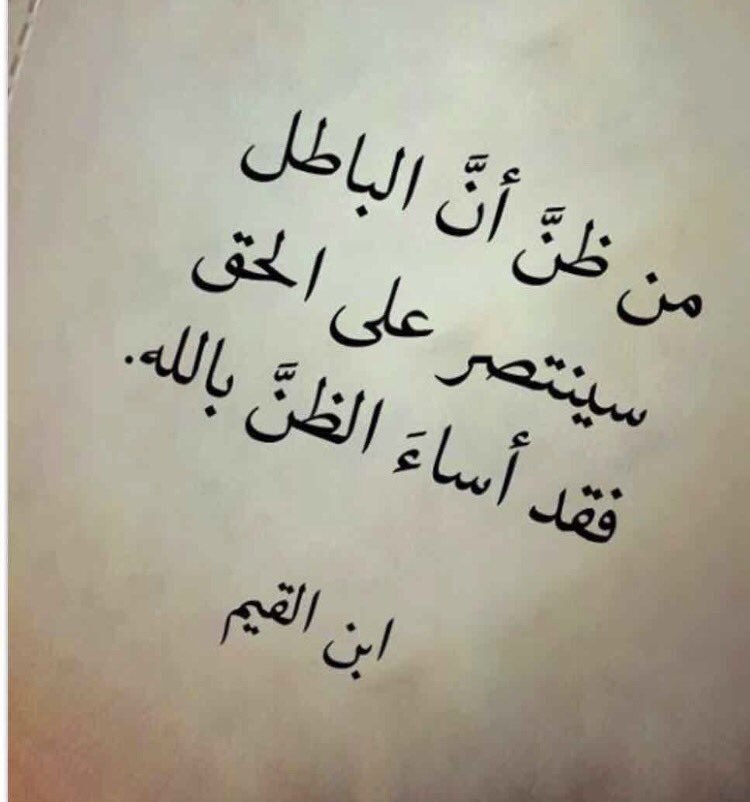 من ظنَّ أنَّ الباطل
سينتصر على الحق
فقد أساءَ الظنَّ بالله.
ابن القيم